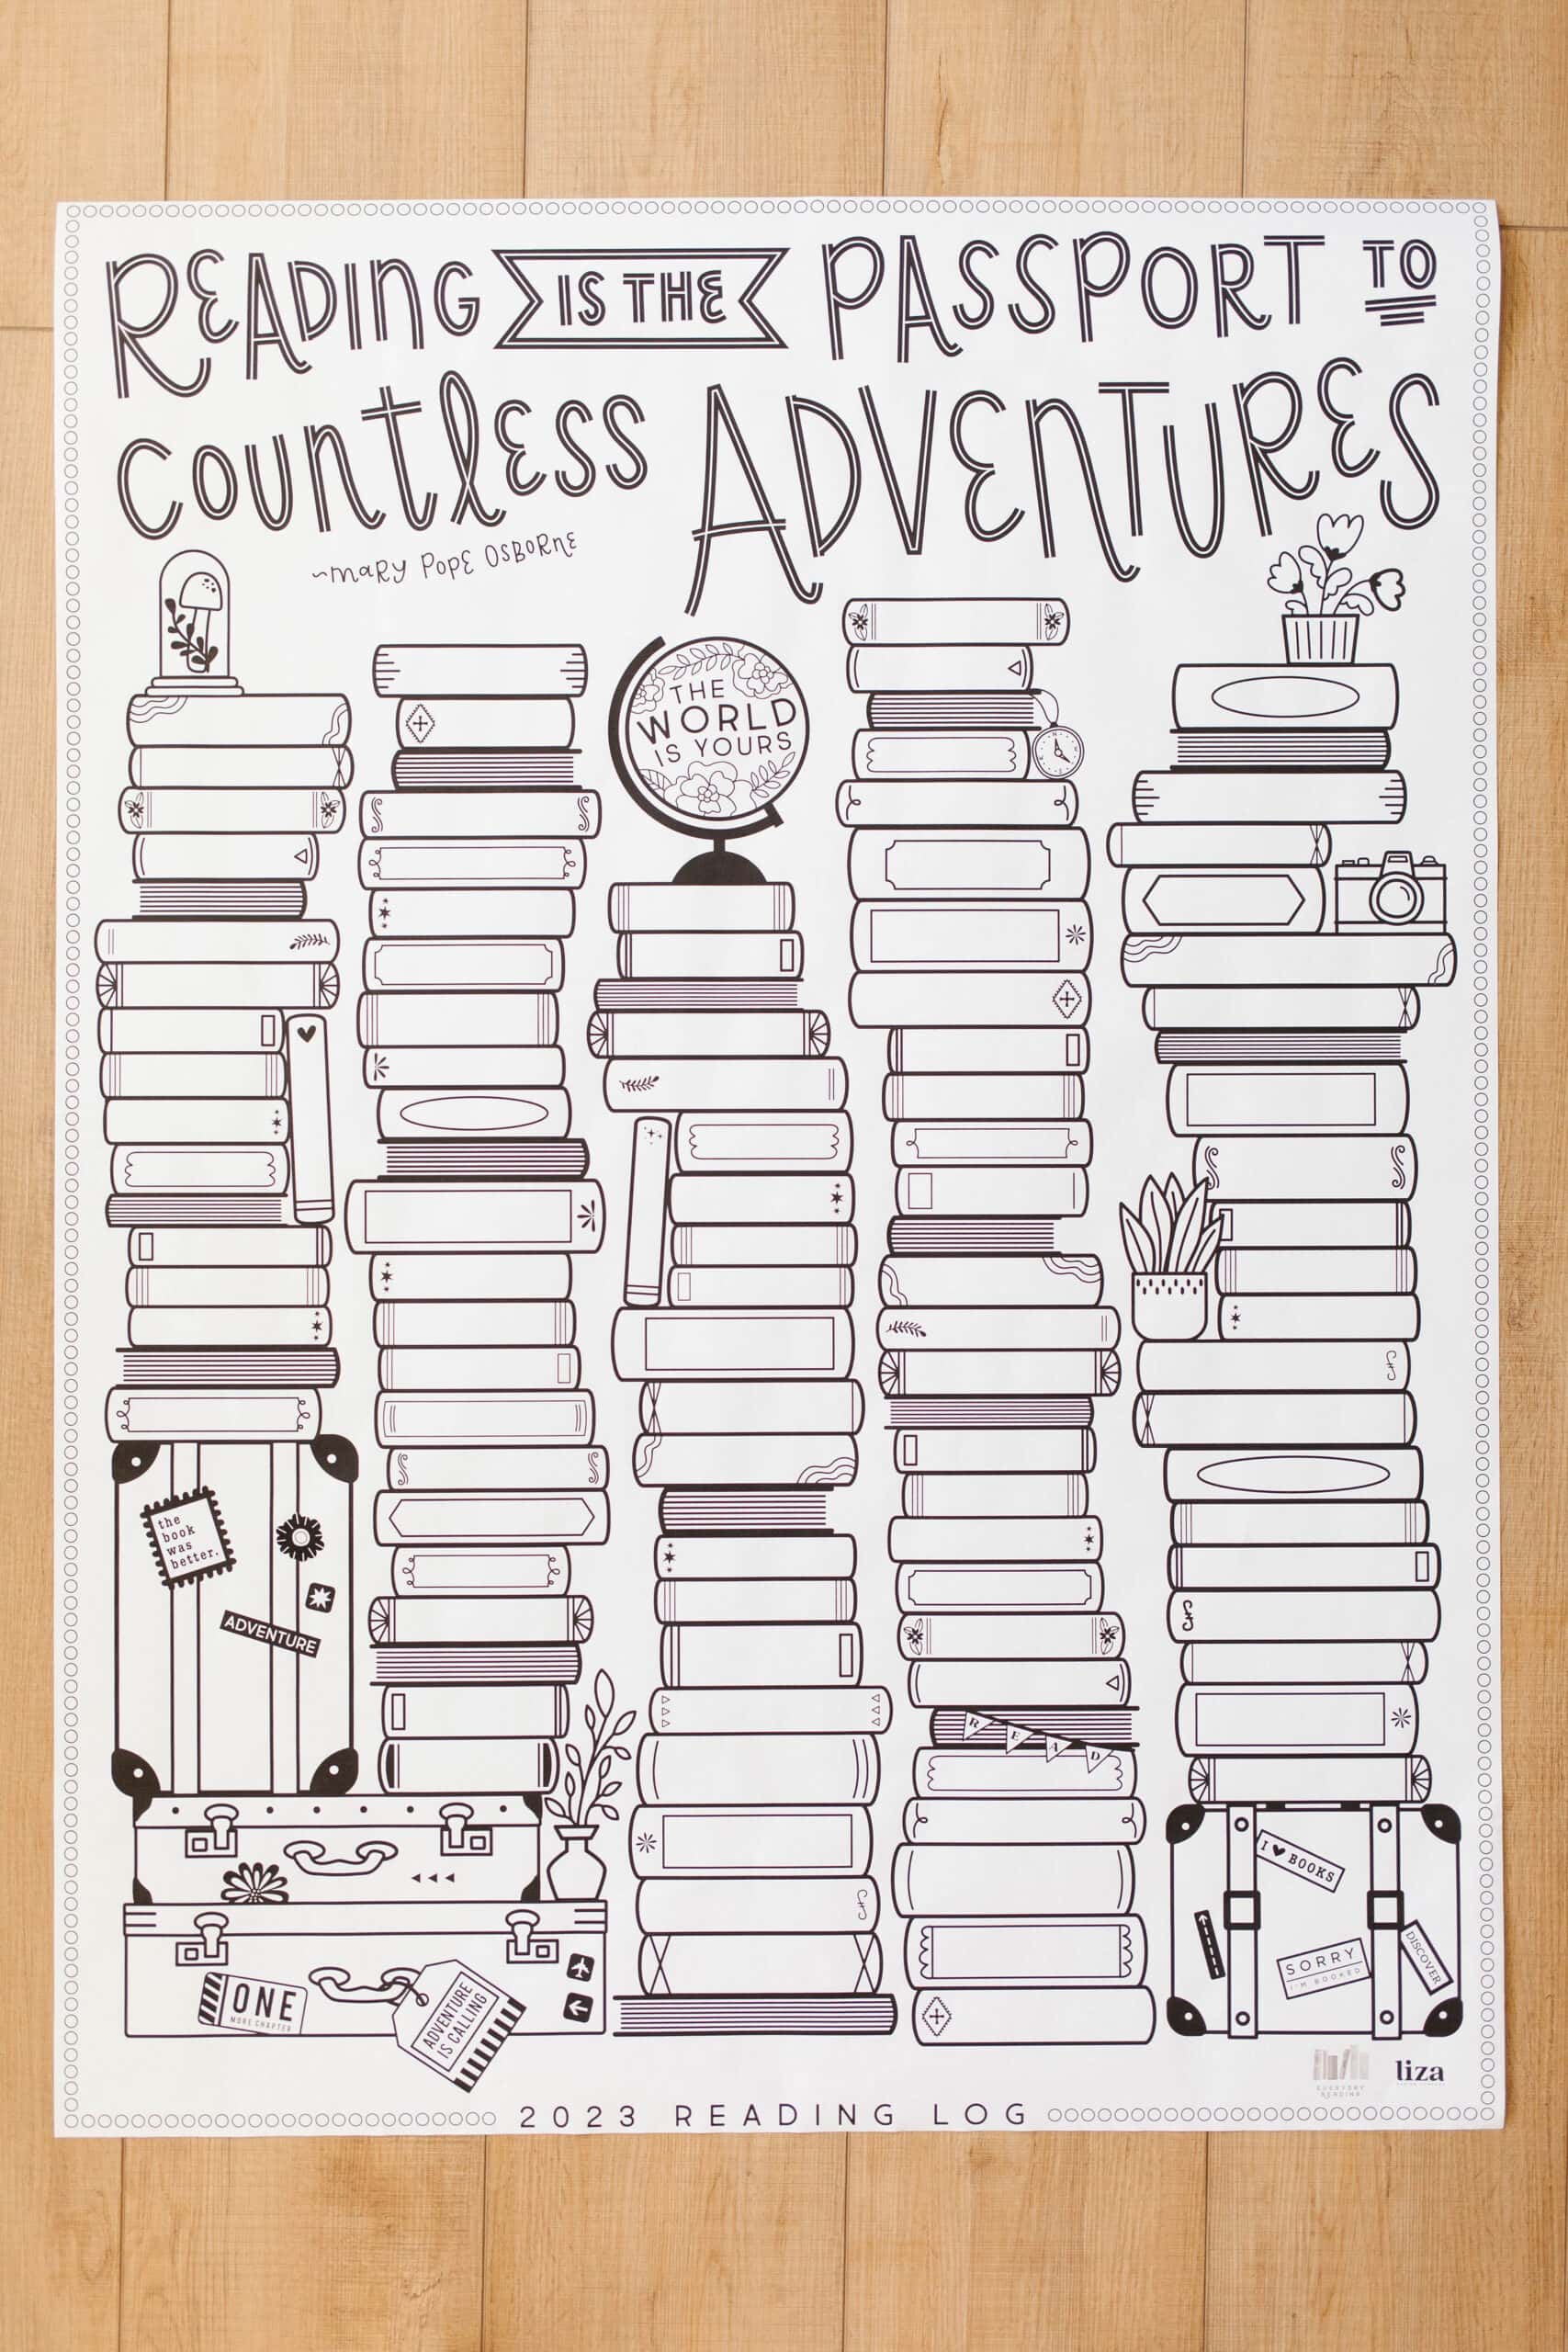 READING IS THE PASSPORT TO
COUNTLESS ADVENTURES
~MARY POPE OSBORNE
THE
WORLD
IS YOURS
the
book
was
better.
ADVENTURE
READ
I ♥ BOOKS
SORRY
I'M BOOKED
DISCOVER
ONE
MORE CHAPTER
ADVENTURE
IS CALLING
EVERYDAY
READING
liza
2023 READING LOG